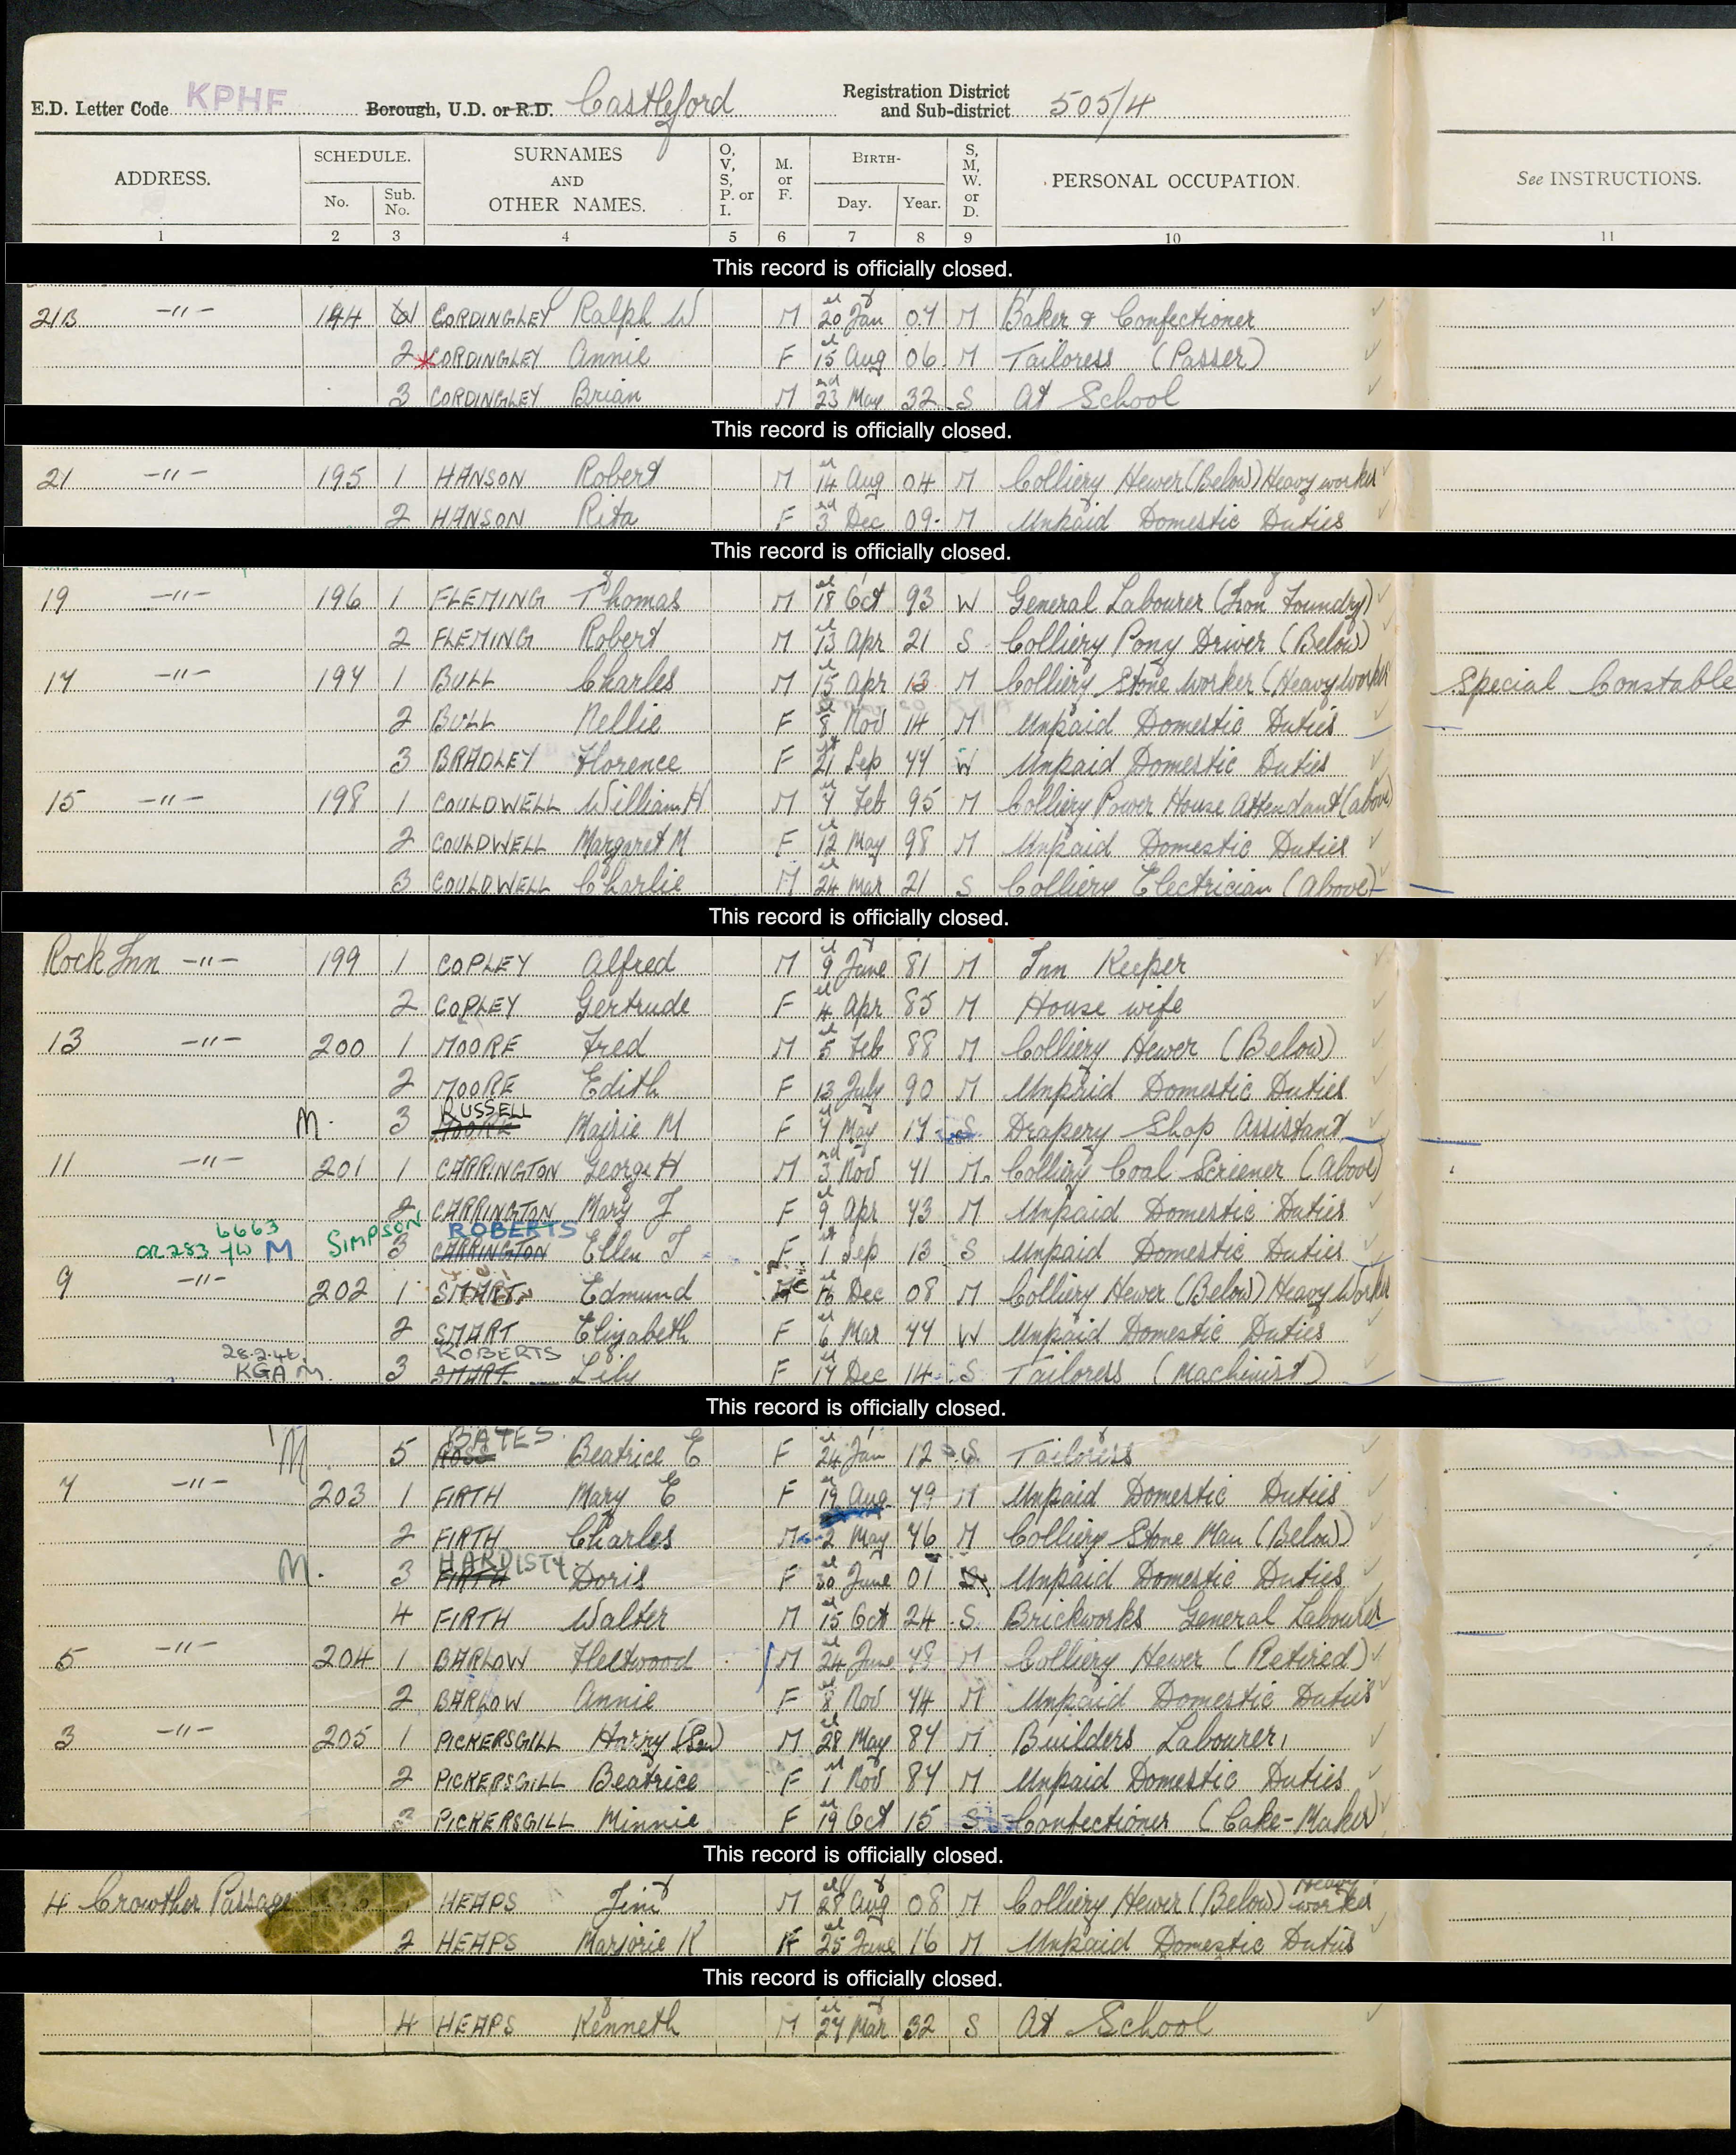 E.D. Letter Code KPHF Borough, U.D. or R.D. Castleford Registration District and Sub-district 505/4
ADDRESS. SCHEDULE. No. Sub. No. SURNAMES AND OTHER NAMES. O, V, S, P. or I. M. or F. BIRTH- Day. Year. S, M, W. or D. PERSONAL OCCUPATION. See INSTRUCTIONS.
1 2 3 4 5 6 7 8 9 10 11
This record is officially closed.
21B -"- 194 1 CORDINGLEY Ralph W M 20 Jan 07 M Baker & Confectioner
2 CORDINGLEY Annie F 15 Aug 06 M Tailoress (Passer)
3 CORDINGLEY Brian M 23 May 32 S At School
This record is officially closed.
21 -"- 195 1 HANSON Robert M 14 Aug 04 M Colliery Hewer (Below) Heavy worker
2 HANSON Rita F 3 Dec 09 M Unpaid Domestic Duties
This record is officially closed.
19 -"- 196 1 FLEMING Thomas M 18 Oct 93 W General Labourer (Iron Foundry)
2 FLEMING Robert M 13 Apr 21 S Colliery Pony Driver (Below)
17 -"- 197 1 BULL Charles M 15 Apr 13 M Colliery Stone Worker (Heavy Worker Special Constable
2 BULL Nellie F 8 Nov 14 M Unpaid Domestic Duties
3 BRADLEY Florence F 21 Sep 77 W Unpaid Domestic Duties
15 -"- 198 1 COULDWELL William H M 7 Feb 95 M Colliery Power House Attendant (above)
2 COULDWELL Margaret M F 12 May 98 M Unpaid Domestic Duties
3 COULDWELL Charlie M 24 Mar 21 S Colliery Electrician (Above)
This record is officially closed.
Rock Inn -"- 199 1 COPLEY Alfred M 9 June 81 M Inn Keeper
2 COPLEY Gertrude F 4 Apr 85 M House wife
13 -"- 200 1 MOORE Fred M 5 Feb 88 M Colliery Hewer (Below)
2 MOORE Edith F 13 July 90 M Unpaid Domestic Duties
M. 3 RUSSELL MOORE Maisie M F 7 May 17 S Drapery Shop Assistant
11 -"- 201 1 CARRINGTON George H M 3 Nov 71 M Colliery Coal Screener (Above)
2 CARRINGTON Mary J F 9 Apr 73 M Unpaid Domestic Duties
6663 SIMPSON ROBERTS
CR283 M 3 CARRINGTON Ellen J F 1 Sep 13 S Unpaid Domestic Duties
9 -"- 202 1 SMART Edmund M 16 Dec 08 M Colliery Hewer (Below) Heavy Worker
2 SMART Elizabeth F 6 Mar 77 W Unpaid Domestic Duties
28.2.42 ROBERTS
KGA M. 3 SMART Lily F 17 Dec 14 S Tailoress (Machinist)
This record is officially closed.
M 5 BATES ROSS Beatrice E F 24 Jan 12 S Tailoress
7 -"- 203 1 FIRTH Mary E F 19 Aug 79 M Unpaid Domestic Duties
2 FIRTH Charles M 2 May 76 M Colliery Stone Man (Below)
M. 3 HARDISTY FIRTH Doris F 30 June 01 S Unpaid Domestic Duties
4 FIRTH Walter M 15 Oct 24 S. Brickworks General Labourer
5 -"- 204 1 BARLOW Fleetwood M 24 June 78 M Colliery Hewer (Retired)
2 BARLOW Annie F 8 Nov 74 M Unpaid Domestic Duties
3 -"- 205 1 PICKERSGILL Harry (Sen) M 28 May 87 M Builders Labourer,
2 PICKERSGILL Beatrice F 1 Nov 87 M Unpaid Domestic Duties
3 PICKERSGILL Minnie F 19 Oct 15 S Confectioner (Cake-Maker)
This record is officially closed.
4 Crowther Passage HEAPS Jim M 28 Aug 08 M Colliery Hewer (Below) Heavy worker
2 HEAPS Marjorie K F 25 June 16 M Unpaid Domestic Duties
This record is officially closed.
4 HEAPS Kenneth M 27 Mar 32 S At School